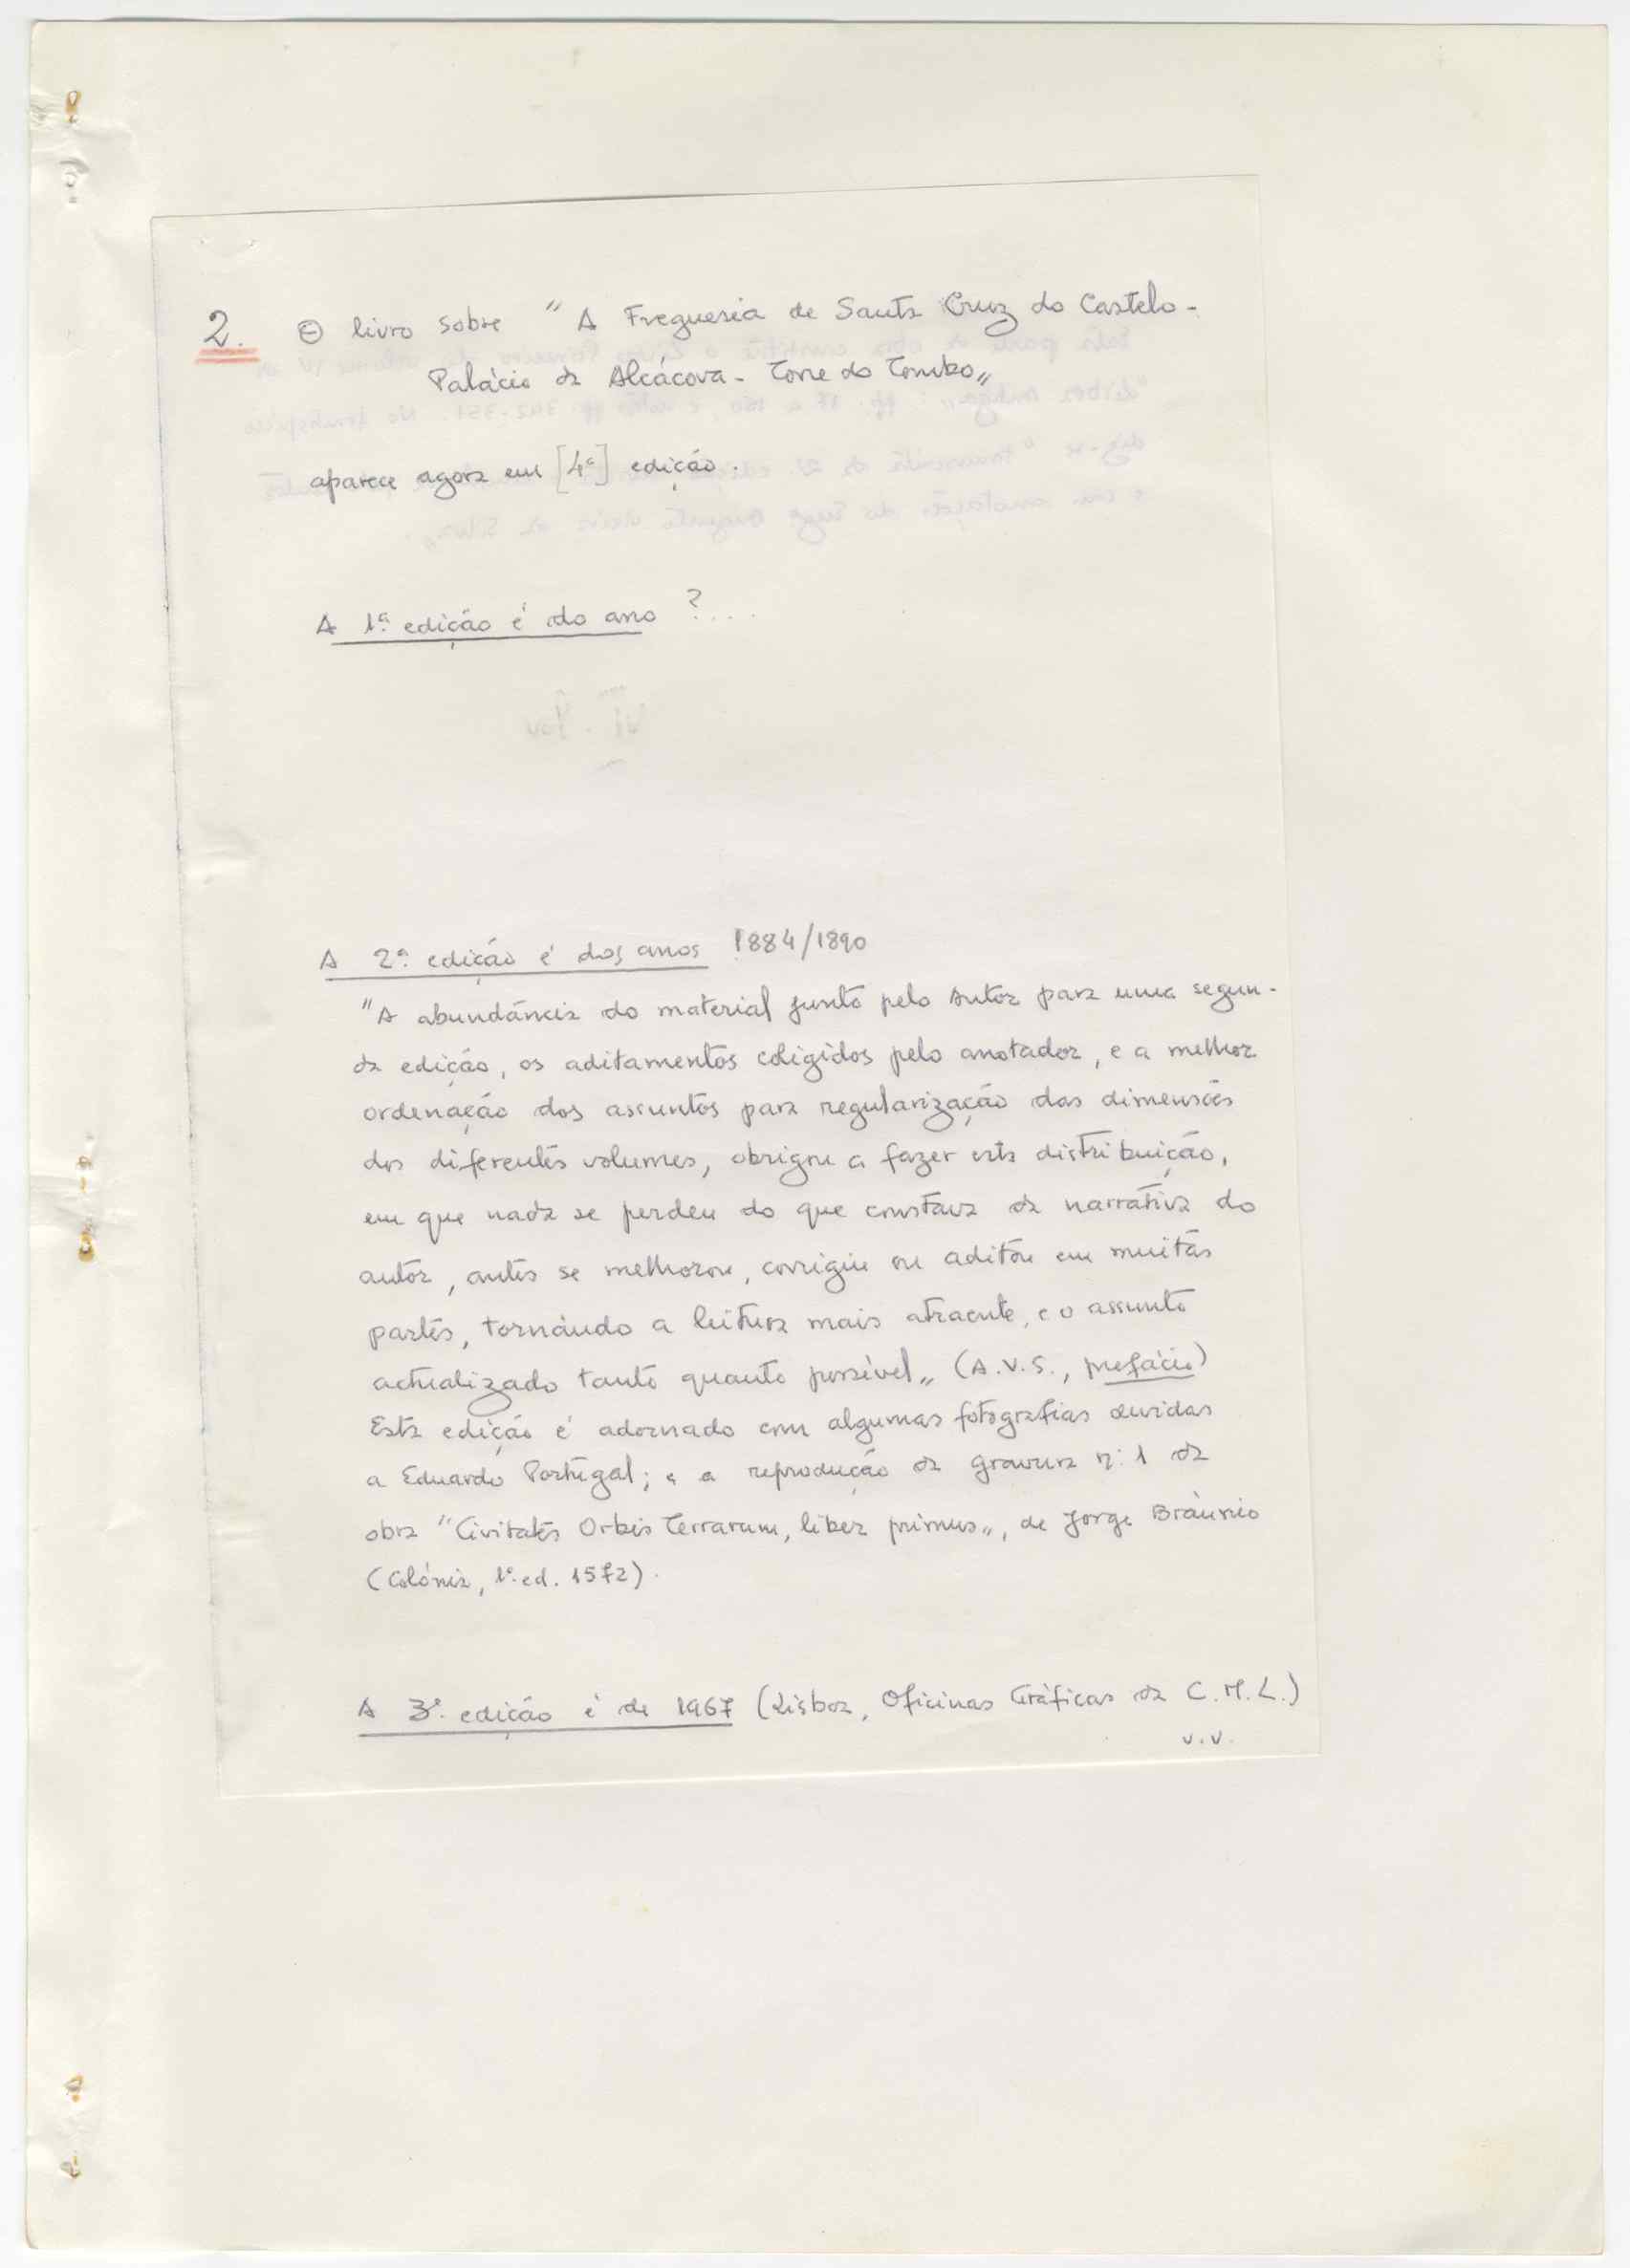 2. O livro sobre "A Freguesia de Santa Cruz do Castelo -
Palácio da Alcáçova - Torre do Tombo„
aparece agora em [4ª] edição.
A 1ª edição é do ano ?....
A 2ª edição é dos anos 1884/1890
"A abundância do material junto pelo Autor para uma segun-
da edição, os aditamentos coligidos pelo anotador, e a melhor
ordenação dos assuntos para regularização das dimensões
dos diferentes volumes, obrigou a fazer esta distribuição,
em que nada se perdeu do que constava da narrativa do
autor, antes se melhorou, corrigiu ou aditou em muitas
partes, tornando a leitura mais atraente, e o assunto
actualizado tanto quanto possível„ (A.V.S., prefácio)
Esta edição é adornado com algumas fotografias devidas
a Eduardo Portugal; e a reprodução da gravura nº 1 da
obra "Civitates Orbis Terrarum, liber primus„, de Jorge Bráunio
(Colónia, 1ª ed. 1572).
A 3ª edição é de 1967 (Lisboa, Oficinas Gráficas da C.M.L.)
v.v.